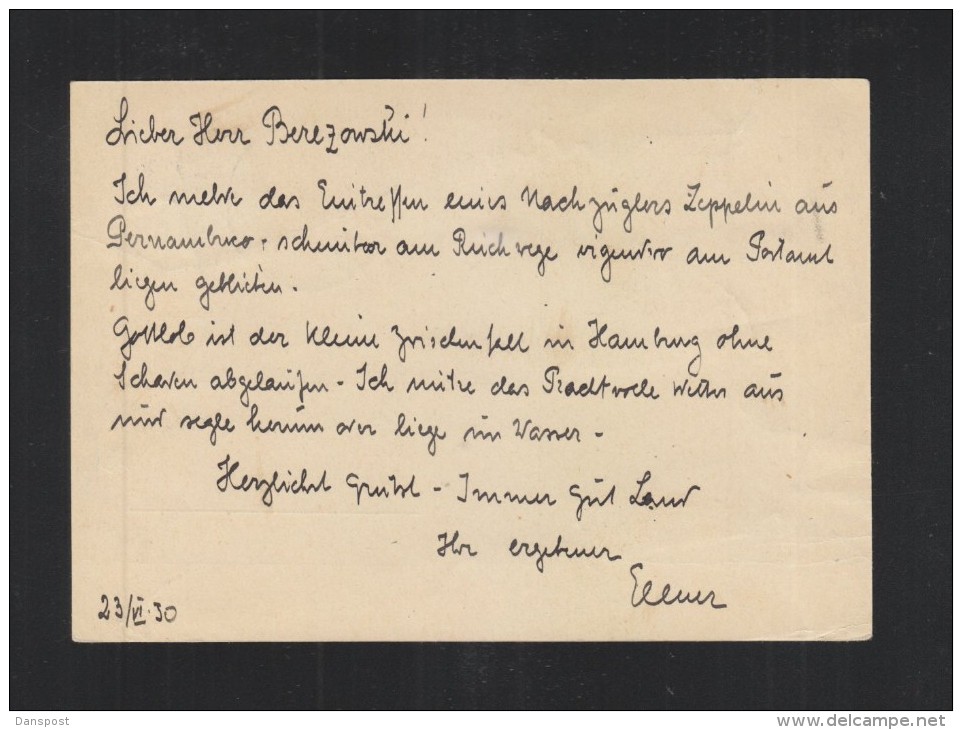 Lieber Herr Berezowski!
Ich melde das Eintreffen eines Nachzüglers Zeppelin aus
Pernambuco - scheinbar am Reichwege irgendwo am Postamt
liegen geblieben.
Gottlob ist der kleine Zwischenfall in Hamburg ohne
Schaden abgelaufen - Ich nütze das Prachtvolle Wetter aus
und segle herum oder liege im Wasser -
Herzlichst Grüsst - Immer Gut Land
Ihr ergebener
23/VI.30
Danspost
www.delcampe.net